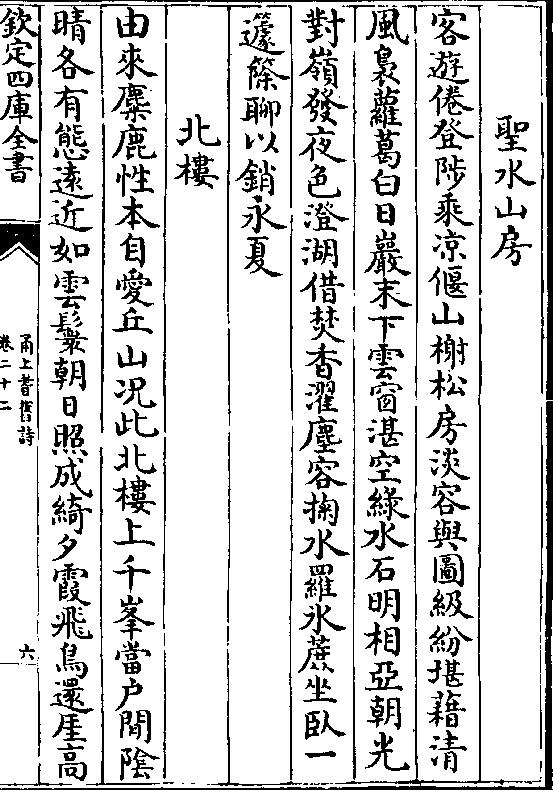 聖水山房
客遊倦登陟乘凉偃山榭松房淡容與圖級紛堪藉清
風裊蘿葛白日巖末下雲窗湛空綠水石明相亞朝光
對嶺發夜色澄湖借焚香濯塵容掬水羅氷蔗坐臥一
籧篨聊以銷永夏
北樓
由來麋鹿性本自愛丘山况此北樓上千峯當户間陰
晴各有態遠近如雲鬟朝日照成綺夕霞飛鳥還厓高
欽定四庫全書
甬上耆舊詩
卷二十二
六